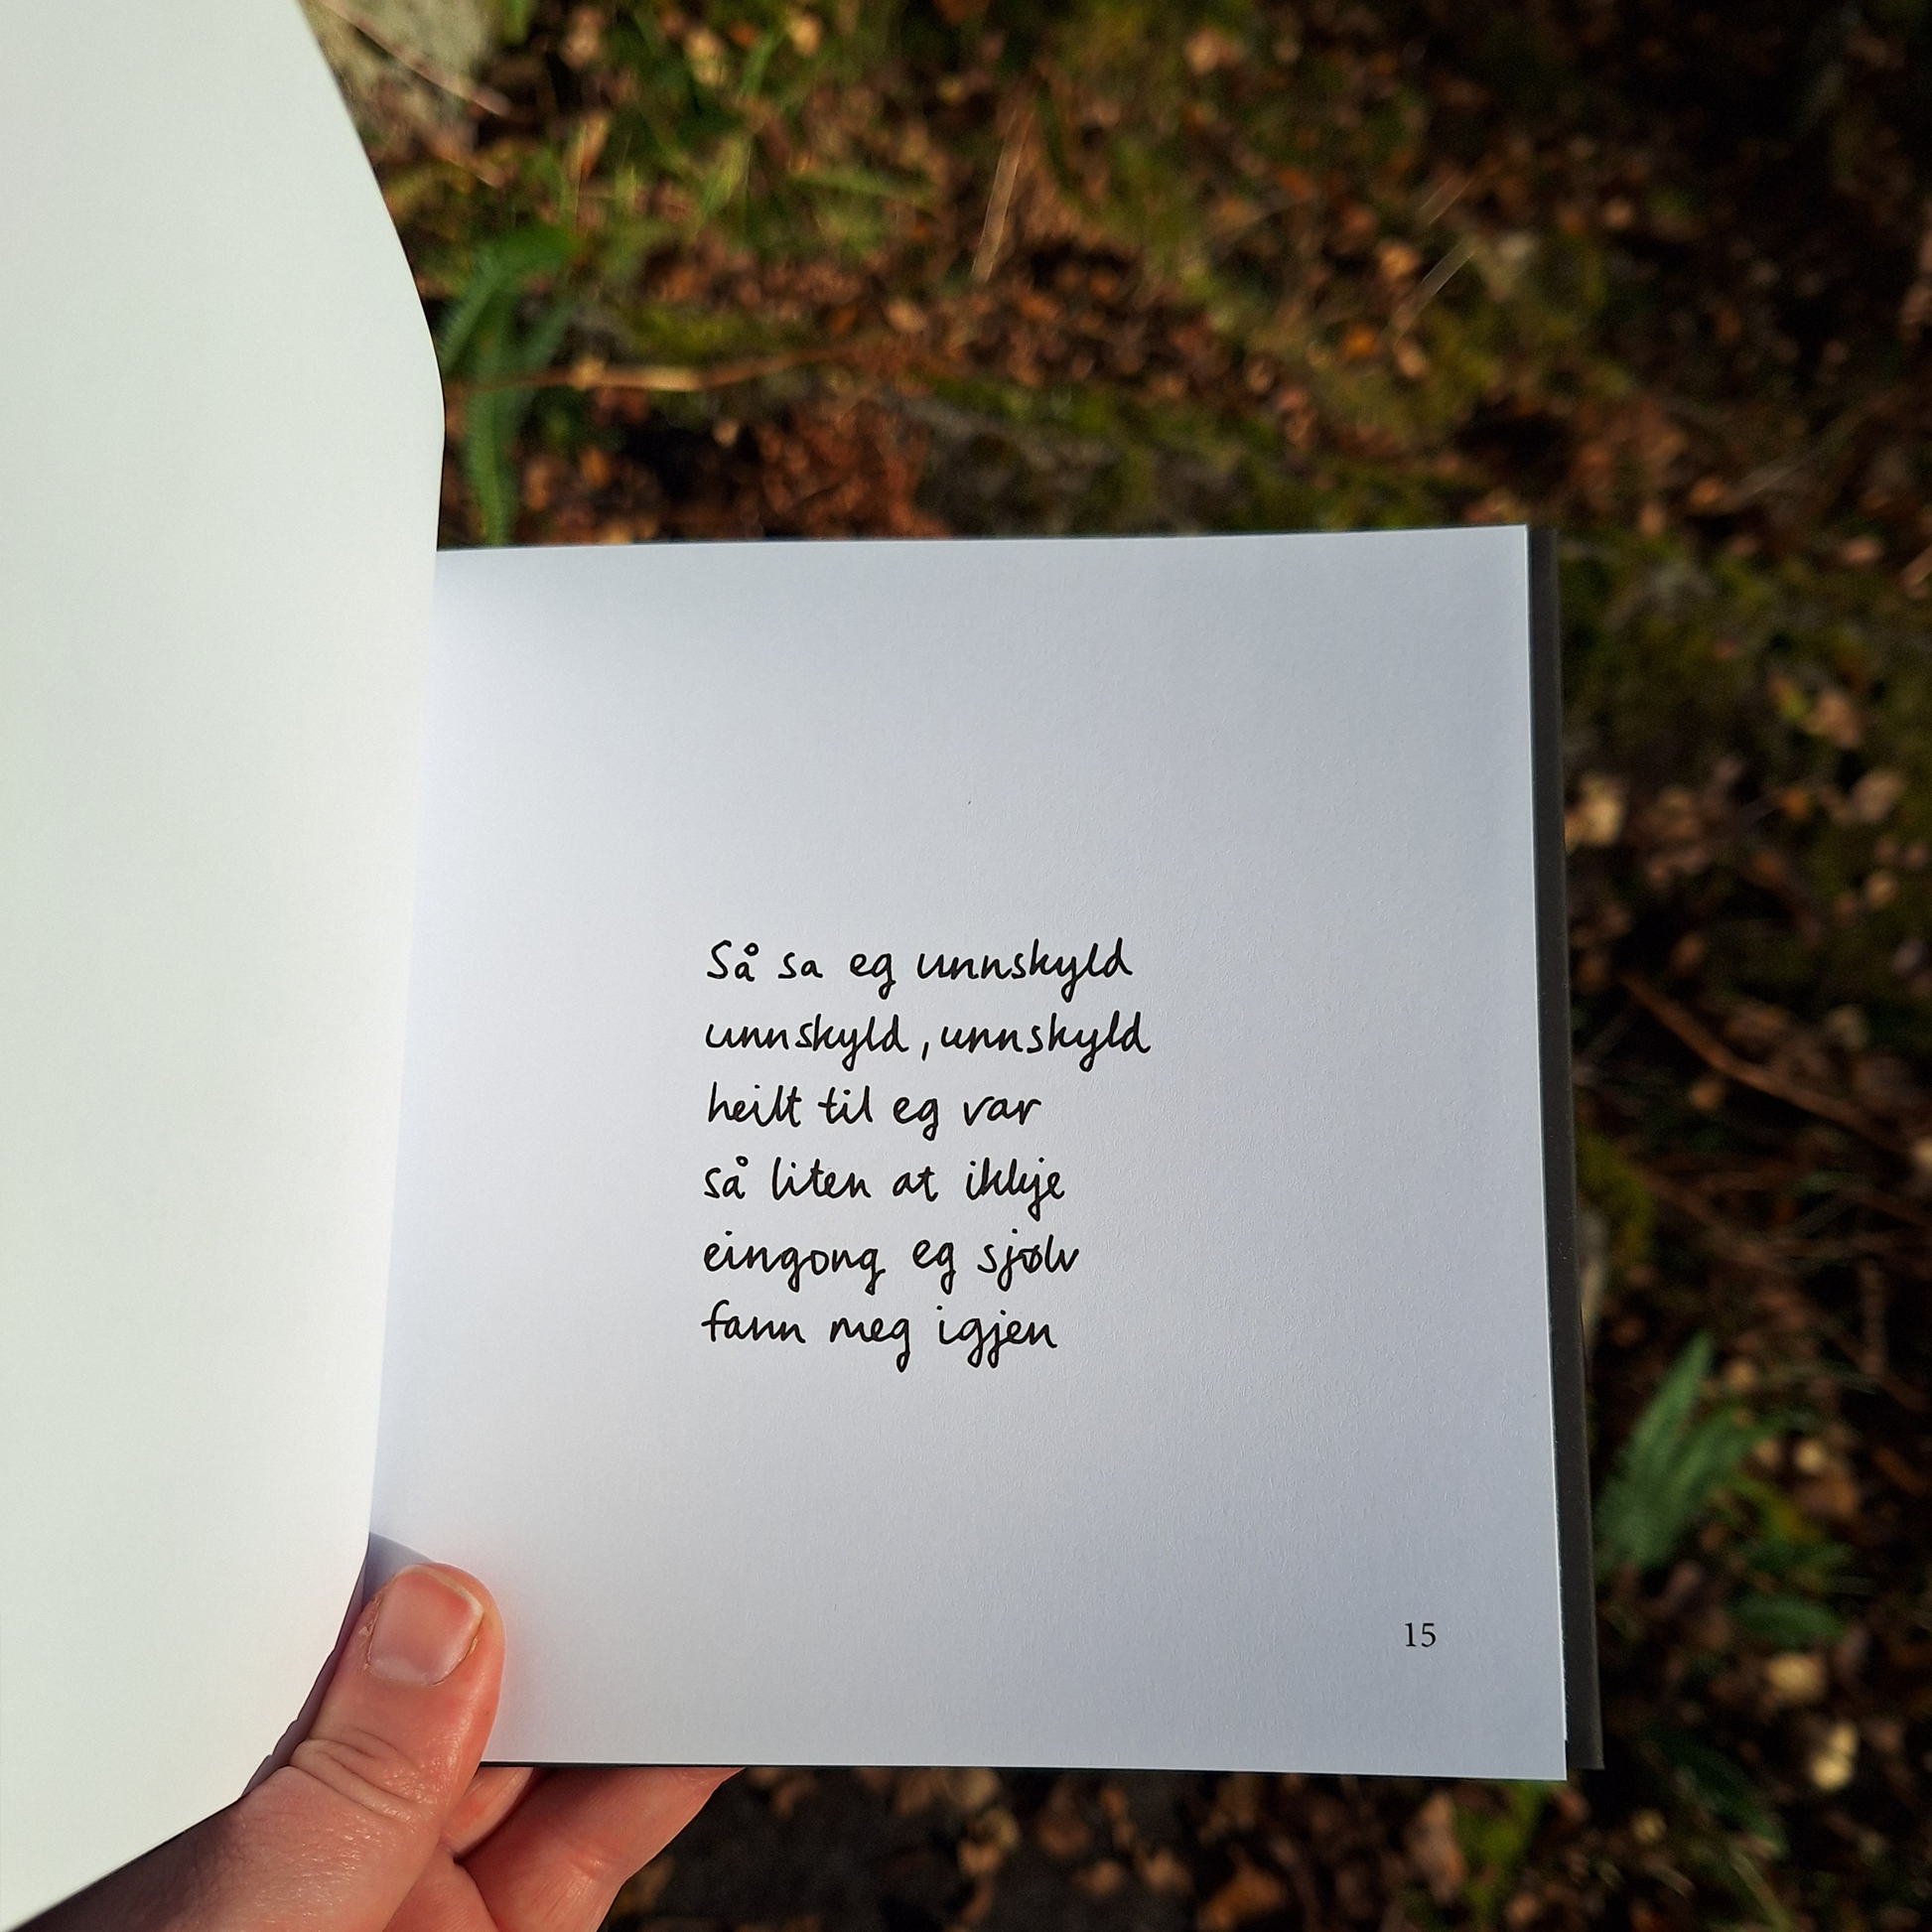 Så sa eg unnskyld
unnskyld, unnskyld
heilt til eg var
så liten at ikkje
eingong eg sjølv
fann meg igjen
15